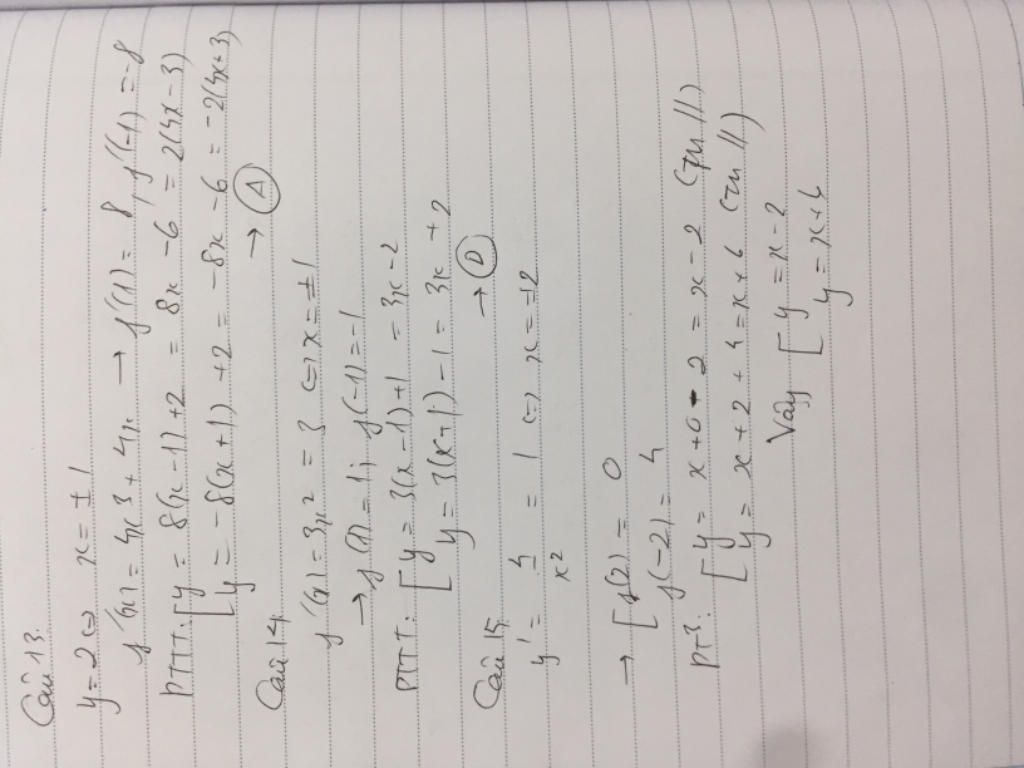 Câu 13.
y = 2 ⇔ x = ± 1
f'(x) = 4x3 + 4x → f'(1) = 8, f'(-1) = -8
PTTT: [ y = 8(x - 1) + 2 = 8x - 6 = 2(4x - 3)
y = -8(x + 1) + 2 = -8x - 6 = -2(4x + 3)
→ (A)
Câu 14.
f'(x) = 3x² = 3 ⇔ x = ± 1
→ f(1) = 1; f(-1) = -1
PTTT: [ y = 3(x - 1) + 1 = 3x - 2
y = 3(x + 1) - 1 = 3x + 2
→ (D)
Câu 15.
y' = 4/x² = 1 ⇔ x = ±2
→ [ f(2) = 0
f(-2) = 4
PT: [ y = x + 0 - 2 = x - 2 (TM //)
y = x + 2 + 4 = x + 6 (TM //)
Vậy [ y = x - 2
y = x + 6